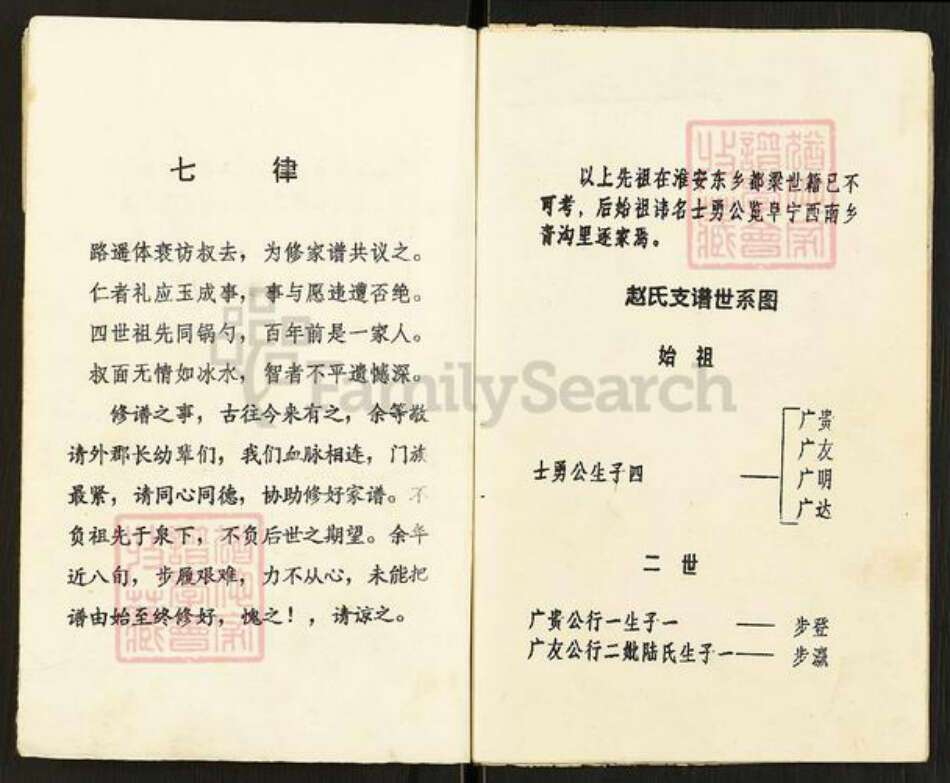 七 律
路遥体衰访叔去，为修家谱共议之。
仁者礼应玉成事，事与愿违遭否绝。
四世祖先同锅勺，百年前是一家人。
叔面无情如冰水，智者不平遗憾深。
修谱之事，古往今来有之，余等敬
请外郡长幼辈们，我们血脉相连，门族
最紧，请同心同德，协助修好家谱。不
负祖先于泉下，不负后世之期望。余年
近八旬，步履艰难，力不从心，未能把
谱由始至终修好，愧之！，请谅之。
以上先祖在淮安东乡都梁世籍已不
可考，后始祖讳名士勇公览阜宁西南乡
青沟里逐家焉。
赵氏支谱世系图
始 祖
士勇公生子四
广贵
广友
广明
广达
二 世
广贵公行一生子一——步登
广友公行二妣陆氏生子一——步瀛
FamilySearch